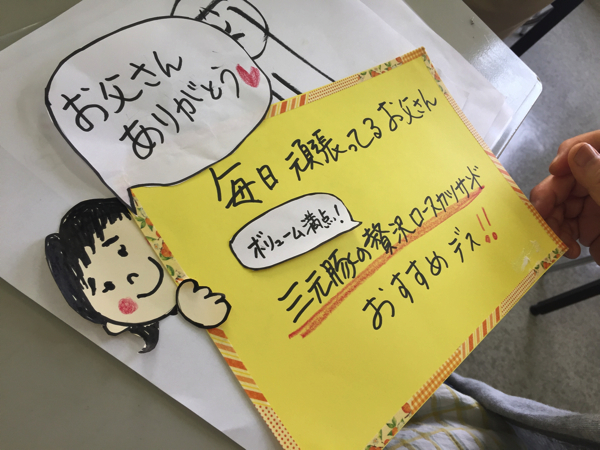 お父さん
ありがとう
毎日頑張ってるお父さん
ボリューム満点!
三元豚の贅沢ロースカツサンド
おすすめデス!!